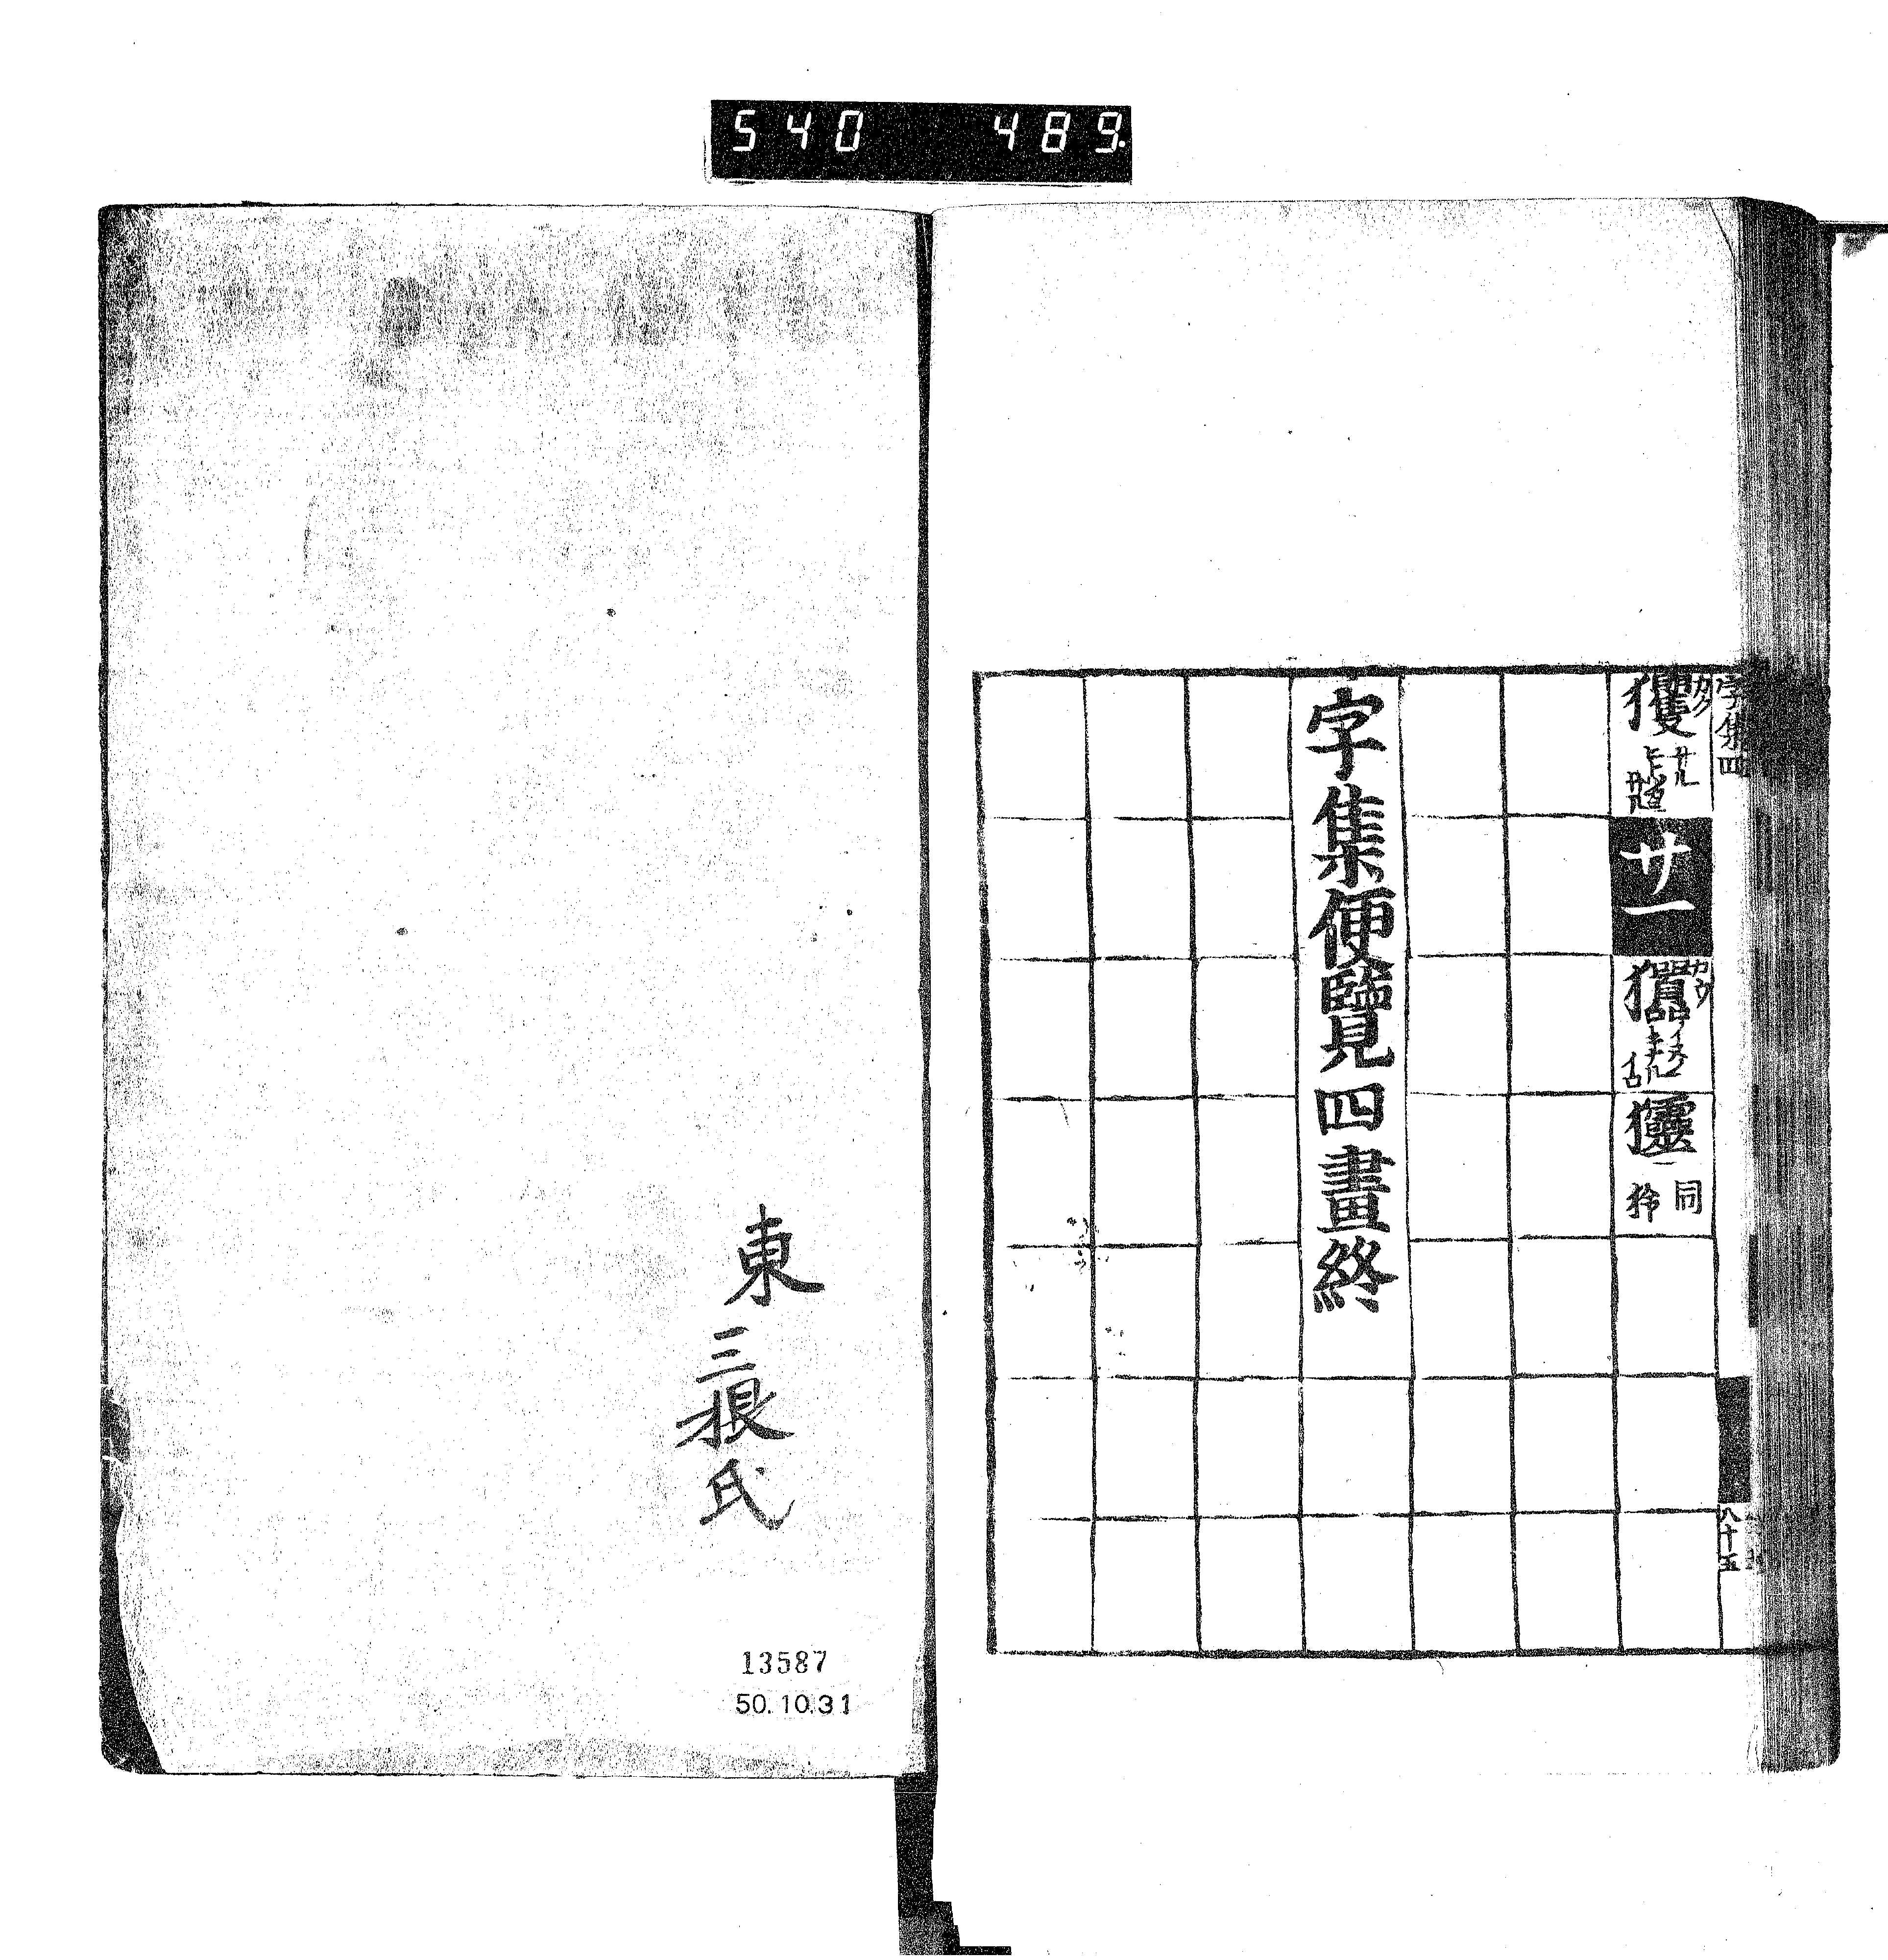 540 489.
字集四
玃 カク サル
廿一
カウ
同 狑
字集便覽四畫終
八十五
東
三根氏
13587
50.10.31